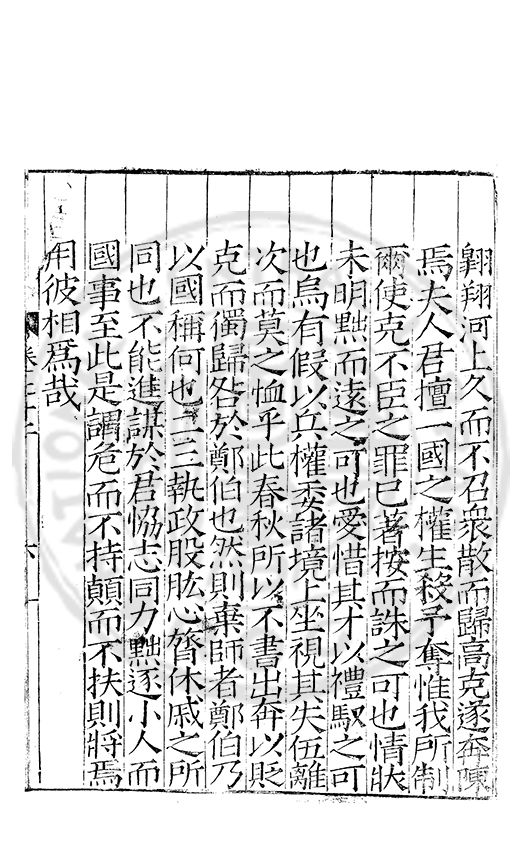 翺翔河上久而不召衆散而歸高克遂奔陳
焉夫人君擅一國之權生殺予奪惟我所制
爾使克不臣之罪已著按而誅之可也情狀
未明黜而遠之可也愛惜其才以禮馭之可
也烏有假以兵權委諸境上坐視其失伍離
次而莫之恤乎此春秋所以不書出奔以貶
克而獨歸咎於鄭伯也然則棄師者鄭伯乃
以國稱何也二三執政股肱心膂休戚之所
同也不能進謀於君恊志同力黜逐小人而
國事至此是謂危而不持顛而不扶則將焉
用彼相爲哉
六